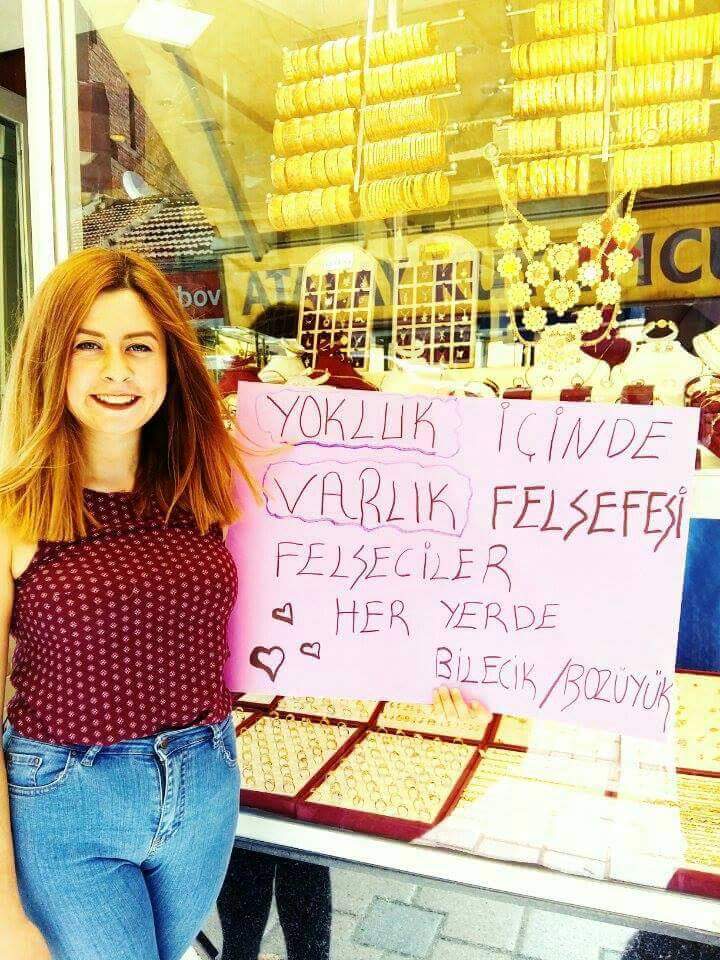 YOKLUK İÇİNDE
VARLIK FELSEFESİ
FELSECİLER
HER YERDE
BİLECİK / BOZÜYÜK
bov
ATA
CU